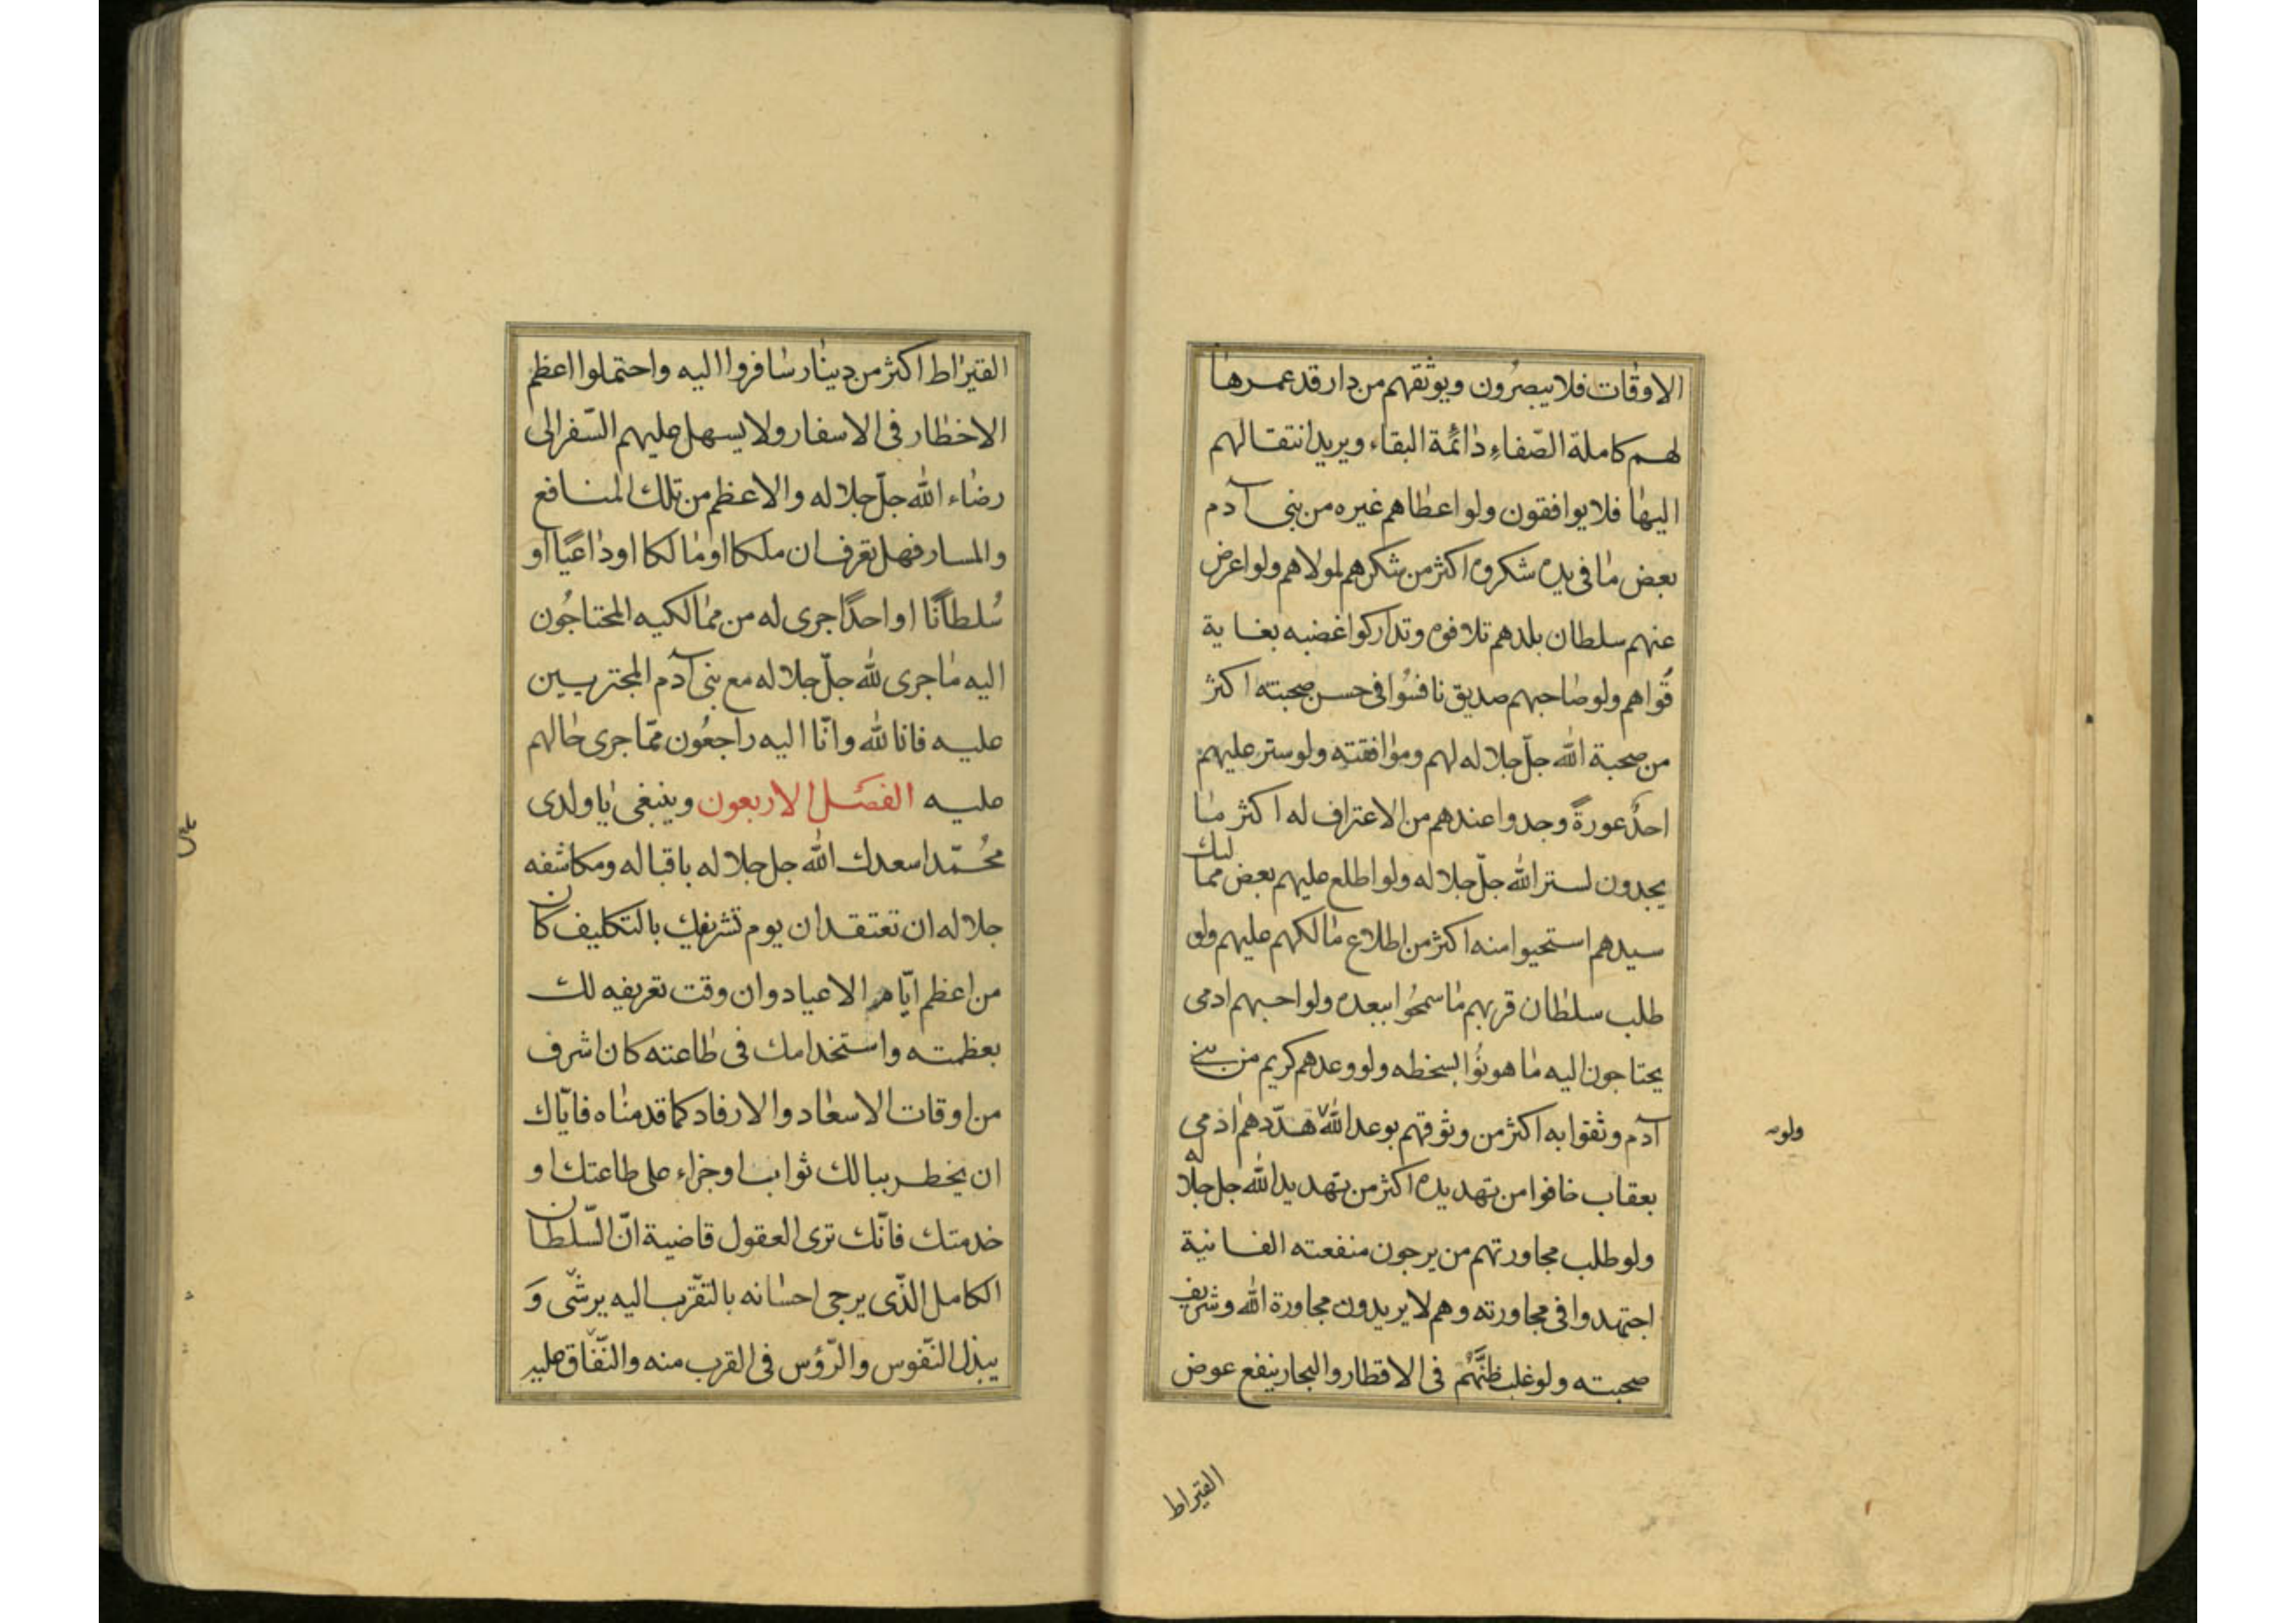 الاوقات فلا يبصرون ويوثقهم من دار قد عمرها
لهم كاملة الصّفاءِ دائمة البقاء ويريد انتقالهم
اليها فلا يوافقون ولو اعطاهم غيره من بنى آدم
بعض ما فى يده شكروه اكثر من شكرهم لمولاهم ولو اعرض
عنهم سلطان بلدهم تلافوه وتداركوا غضبه بغاية
قُواهم ولو صاحبهم صديق نافسُوا فى حسن صحبته اكثر
من صحبة الله جلّ جلاله لهم وموافقته ولو ستر عليهم
احدٌ عورةً وجدوا عندهم من الاعتراف له اكثر ما
يجدون لستر الله جلّ جلاله ولو اطلع عليهم بعض مماليك
سيدهم استحيوا منه اكثر من اطلاع مالكهم عليهم ولو
طلب سلطان قربهم ما سمحُوا ببعده ولو احبهم ادمى
يحتاجون اليه ما هونُوا بسخطه ولو وعدهم كريم من بنى
آدم وثقوا به اكثر من وثوقهم بوعد الله هدّدهم ادمى
ولو
بعقاب خافوا من تهديده اكثر من تهديد الله جل جلاله
ولو طلب مجاورتهم من يرجون منفعته الفانية
اجتهدوا فى مجاورته وهم لا يريدون مجاورة الله وشريف
صحبته ولو غلب ظنَّهُم فى الاقطار والبحار ينفع عوض
القيراط
القيراط اكثر من دينار سافروا اليه واحتملوا اعظم
الاخطار فى الاسفار ولا يسهل عليهم السّفر الى
رضاء الله جلّ جلاله والاعظم من تلك المنافع
والمسار فهل تعرف ان ملكا او مالكا او داعيًا او
سُلطانًا او احدًا جرى له من مماليكه المحتاجُون
اليه ما جرى لله جلّ جلاله مع بنى آدم المجتريين
عليه فانا لله وانّا اليه راجعُون ممّا جرى حالهم
عليه الفصل الاربعون وينبغى يا ولدى
محُمّد اسعدك الله جل جلاله باقباله ومكاشفه
جلاله ان تعتقد ان يوم تشريفك بالتكليف كان
من اعظم ايّام الاعياد وان وقت تعريفه لك
بعظمته واستخدامك فى طاعته كان اشرف
من اوقات الاسعاد والارفاد كما قدمناه فايّاك
ان يخطر ببالك ثواب او جزاء على طاعتك او
خدمتك فانّك ترى العقول قاضية انّ السّلطان
الكامل الذّى يرجى احسانه بالتقّرب اليه يرشّى وَ
يبذل النّفوس والرّؤس فى القرب منه والنّفاق عليه